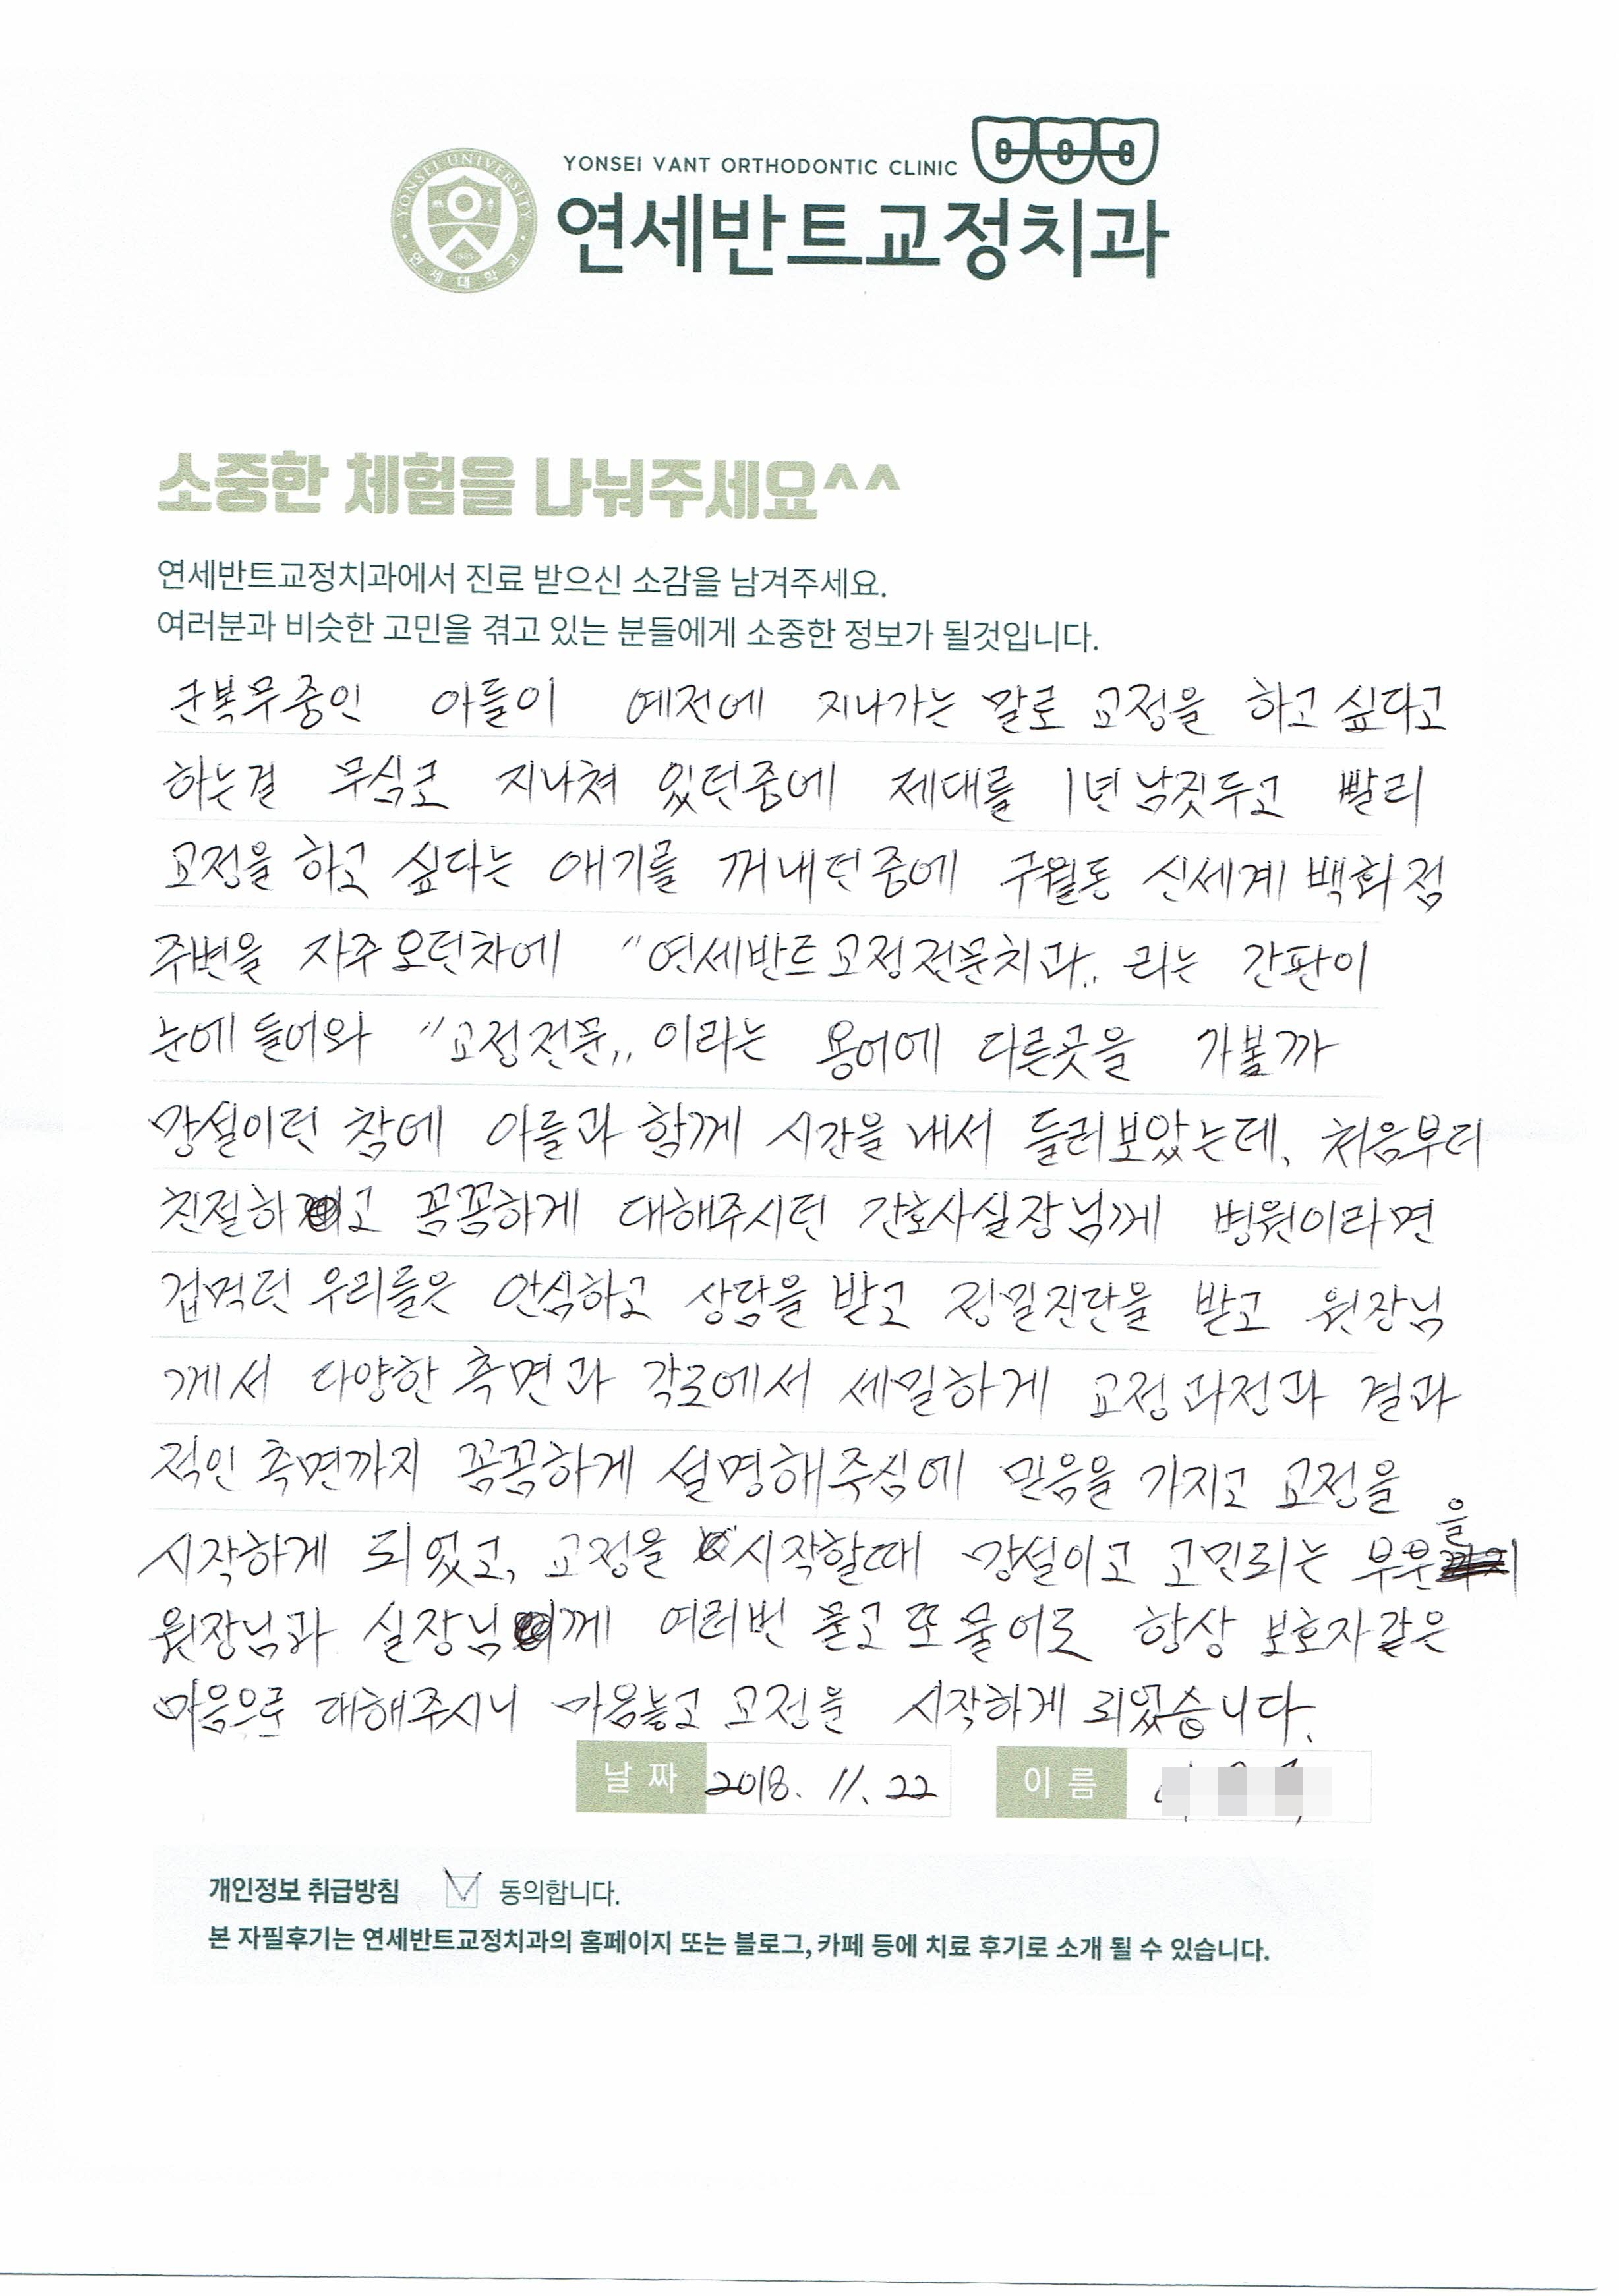 YONSEI VANT ORTHODONTIC CLINIC
YONSEI UNIVERSITY
연세대학교
1885
연세반트교정치과
소중한 체험을 나눠주세요^^
연세반트교정치과에서 진료 받으신 소감을 남겨주세요.
여러분과 비슷한 고민을 겪고 있는 분들에게 소중한 정보가 될것입니다.
군복무중인 아들이 예전에 지나가는 말로 교정을 하고 싶다고
하는걸 무심코 지나쳐 있던중에 제대를 1년 남짓두고 빨리
교정을 하고 싶다는 얘기를 꺼내던중에 구월동 신세계 백화점
주변을 자주오던차에 "연세반트교정전문치과,, 라는 간판이
눈에 들어와 "교정전문,, 이라는 용어에 다른곳을 가볼까
망설이던 참에 아들과 함께 시간을 내서 들러보았는데, 처음부터
친절하고 꼼꼼하게 대해주시던 간호사실장님께 병원이라면
겁먹던 우리들은 안심하고 상담을 받고 정밀진단을 받고 원장님
께서 다양한 측면과 각도에서 세밀하게 교정과정과 결과
적인 측면까지 꼼꼼하게 설명해주심에 믿음을 가지고 교정을
시작하게 되었고, 교정을 시작할때 망설이고 고민되는 부분을
원장님과 실장님께 여러번 묻고 또 물어도 항상 보호자같은
마음으로 대해주시니 마음놓고 교정을 시작하게 되었습니다.
날짜 2018. 11. 22 이름
개인정보 취급방침 동의합니다.
본 자필후기는 연세반트교정치과의 홈페이지 또는 블로그, 카페 등에 치료 후기로 소개 될 수 있습니다.